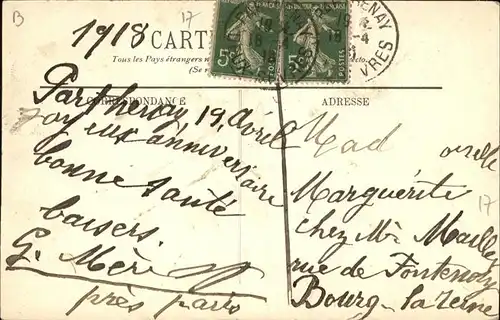 B
17
1918
CARTE
Tous les Pays étrangers n
(Se r
5
5
19
4
18
DEUX SÈVRES
CORRESPONDANCE
ADRESSE
Parthenay 19 Avril
Joyeux anniversaire
bonne santé
baisers.
G. Méri
près
Mad oiselle
Marguerite
chez Mr Mailley
rue de Fontenoy
Bourg-la-Reine
17